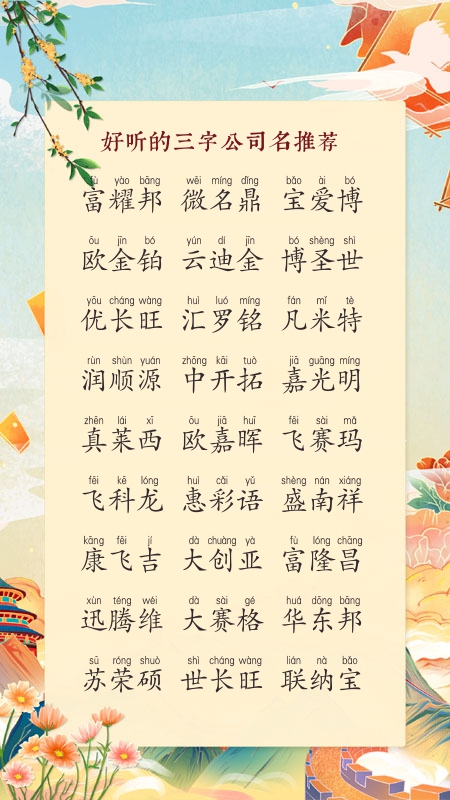 好听的三字公司名推荐
fù yào bāng wēi míng dǐng bǎo ài bó
富耀邦 微名鼎 宝爱博
ōu jīn bó yún dí jīn bó shèng shì
欧金铂 云迪金 博圣世
yōu cháng wàng huì luó míng fán mǐ tè
优长旺 汇罗铭 凡米特
rùn shùn yuán zhōng kāi tuò jiā guāng míng
润顺源 中开拓 嘉光明
zhēn lái xī ōu jiā huī fēi sài mǎ
真莱西 欧嘉晖 飞赛玛
fēi kē lóng huì cǎi yǔ shèng nán xiáng
飞科龙 惠彩语 盛南祥
kāng fēi jí dà chuàng yà fù lóng chāng
康飞吉 大创亚 富隆昌
xùn téng wéi dà sài gé huá dōng bāng
迅腾维 大赛格 华东邦
sū róng shuò shì cháng wàng lián nà bǎo
苏荣硕 世长旺 联纳宝